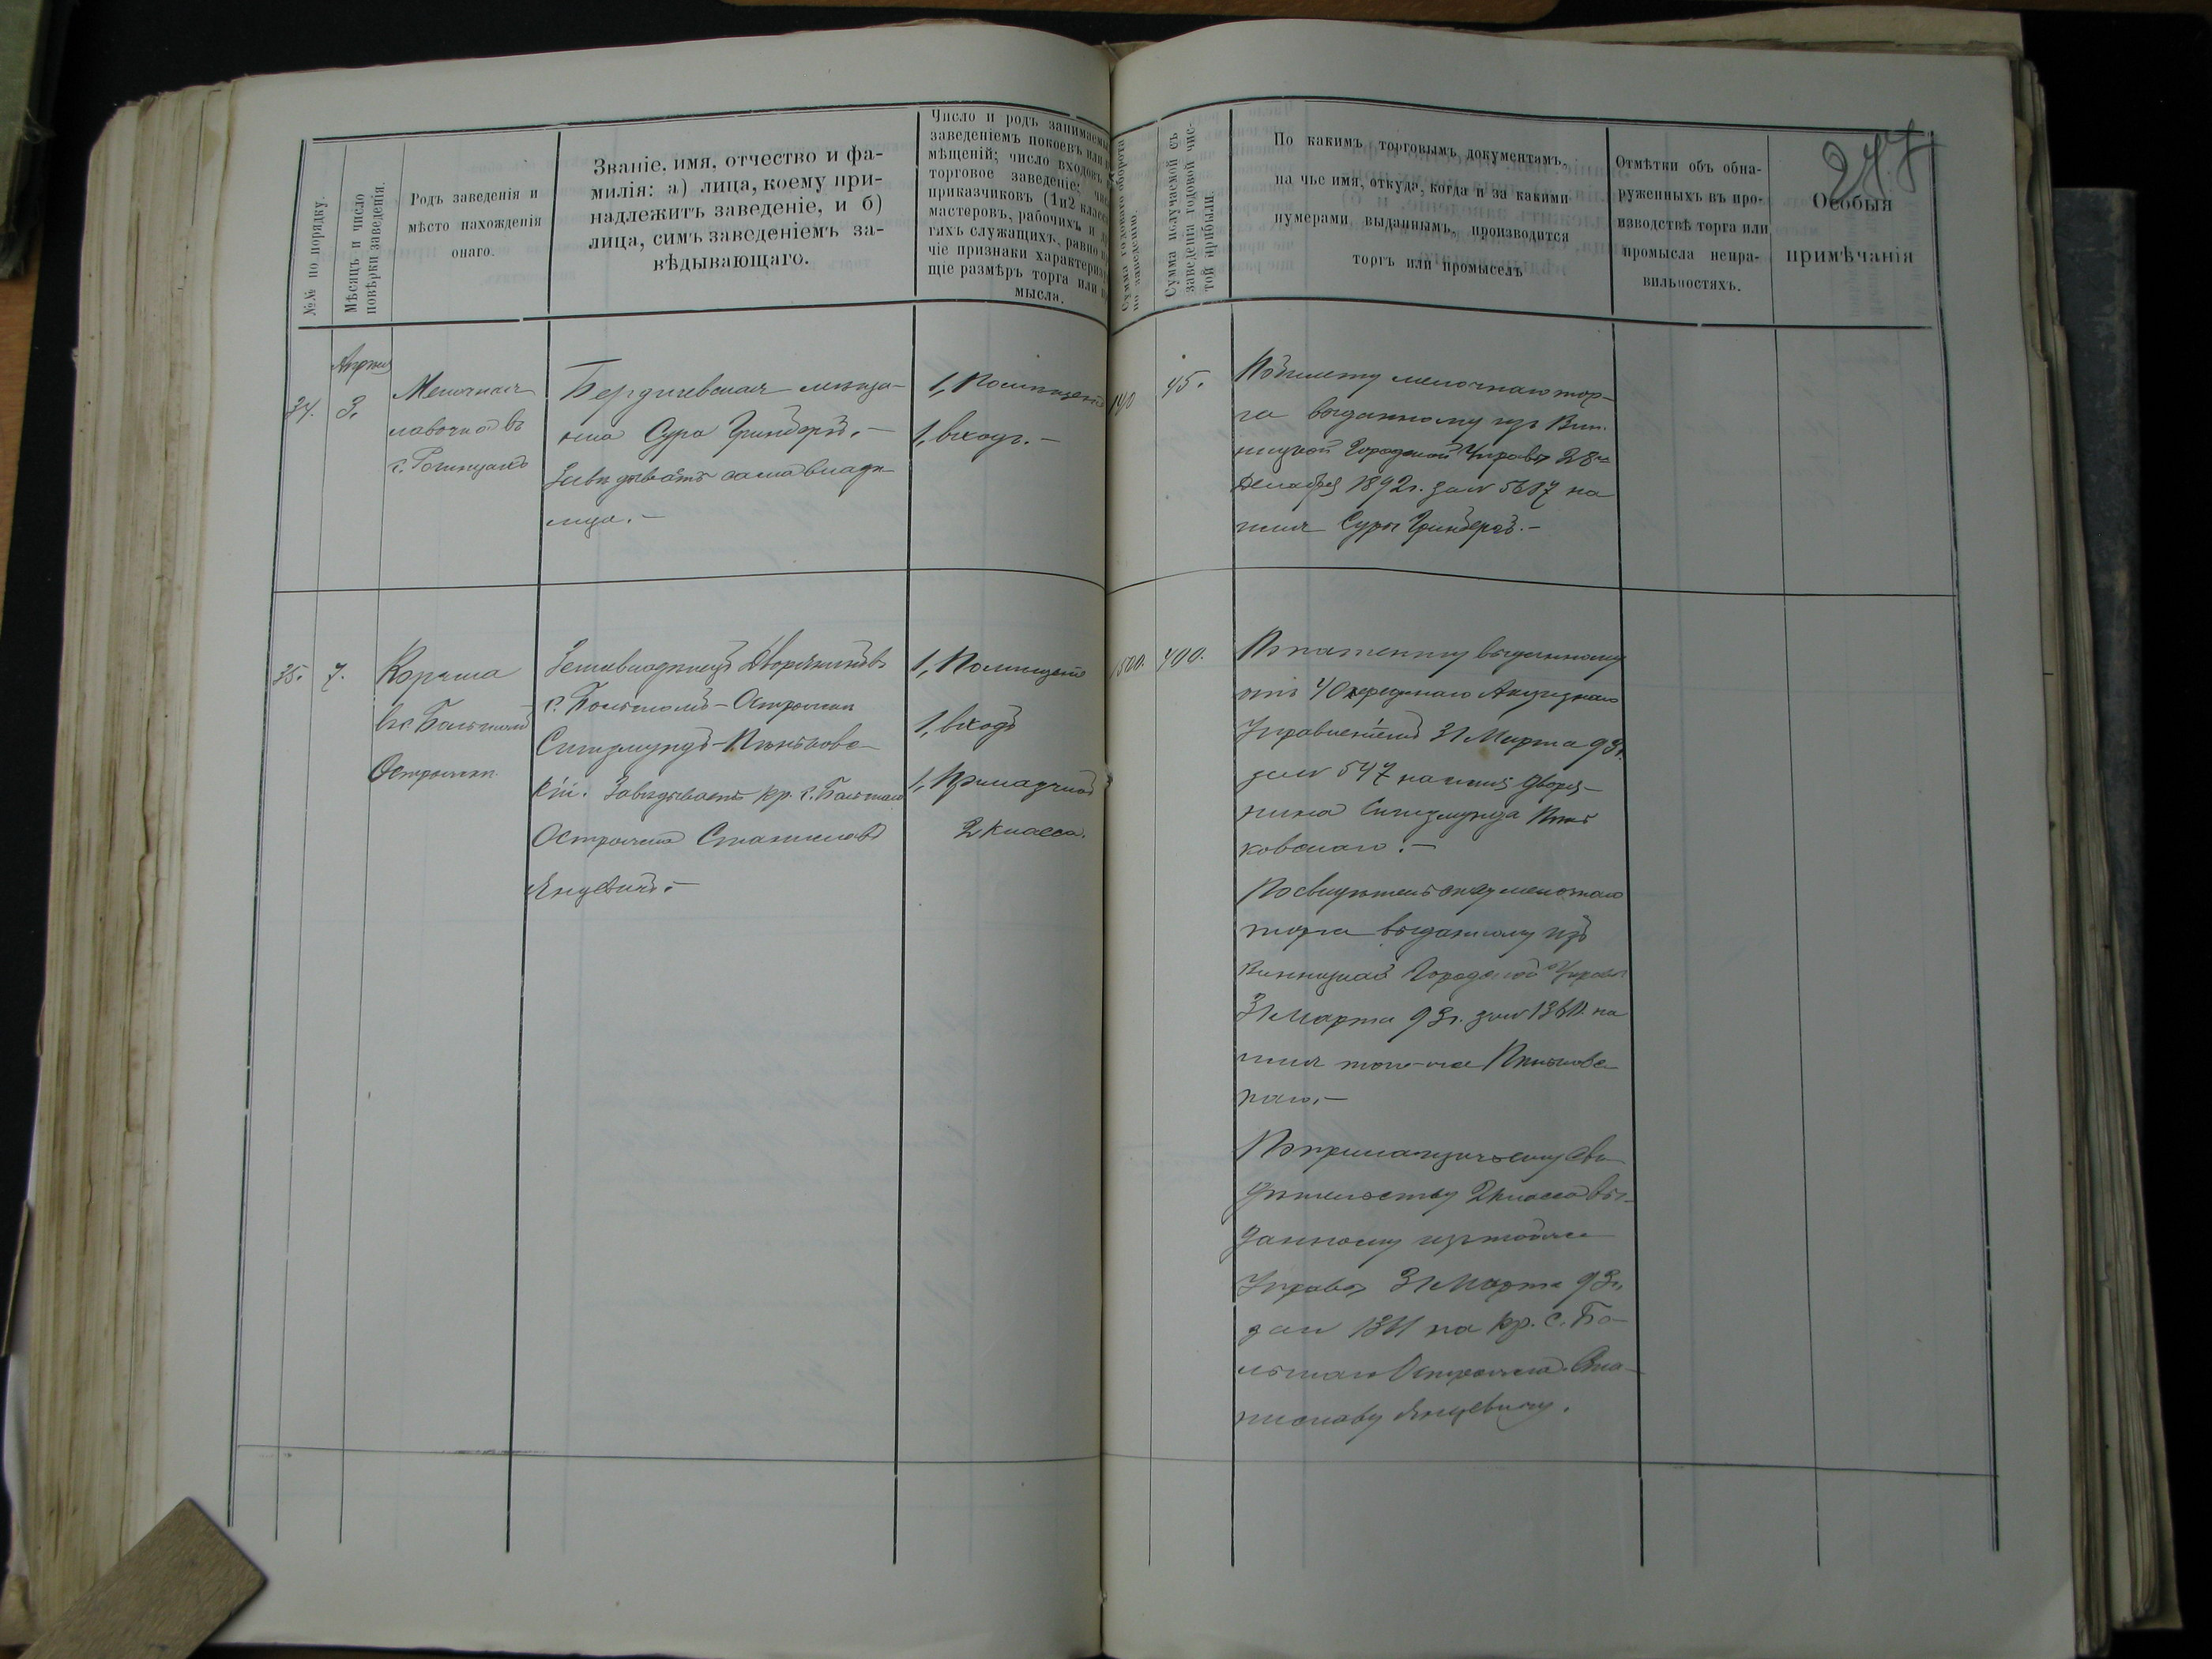 247
№№ по порядку.
Мѣсяцъ и число
повѣрки заведенія.
Родъ заведенія и
мѣсто нахожденія
онаго.
Званіе, имя, отчество и фа-
милія: а) лица, коему при-
надлежитъ заведеніе, и б)
лица, симъ заведеніемъ за-
вѣдывающаго.
Число и родъ занимаемы
заведеніемъ покоевъ или
мѣщеній; число входовъ
торговое заведеніе; чис
приказчиковъ (1 и 2 класс
мастеровъ, рабочихъ и др
гихъ служащихъ, равно п
чіе признаки характериз
щіе размѣръ торга или п
мысла.
Сумма годоваго оборота
по заведенію.
Сумма получаемой съ
заведенія годовой чис-
той прибыли.
По какимъ торговымъ документамъ,
на чье имя, откуда, когда и за какими
нумерами выданнымъ, производится
торгъ или промыселъ
Отмѣтки объ обна-
руженныхъ въ про-
изводствѣ торга или
промысла непра-
вильностяхъ.
Особыя
примѣчанія
34.
Апрѣля
3.
Мелочная
лавочка въ
с.
Бердичевская мѣща-
нка Сура Гринбергъ.-
Завѣдываетъ сама владѣ-
лица.-
1, Помѣщеніе
1, входъ.-
45.
По билету мелочнаго тор-
га выданному изъ Вин-
ницкой Городской Управы 28го
Декабря 1892г. за № на
имя Суры Гринбергъ.-
35.
7.
Корчма
въ с. Большой
Острожкѣ
Землевладѣлецъ Дворянинъ
с. Большой-Острожки
Сигизмундъ-Пѣньковс-
кій. Завѣдываетъ кр. с. Большой
Острожки Станиславъ
Янцевичъ.-
1, Помѣщеніе
1, входъ
1, Приказчикъ
2 класса.
1500.
400.
По патенту выданному
отъ Окружнаго Акцизнаго
Управленія 31 Марта 93г.
за № 547 на имя Дворя-
нина Сигизмунда Пѣнь
ковскаго.-
По свидѣтельству мелочнаго
торга выданному изъ
Винницкой Городской Управы
31 Марта 93г. за № на
имя того-же Пѣньковс
каго.-
По приказчичьему сви
дѣтельству 2 класса вы-
данному изъ той же
Управы 31 Марта 93г.
за № на кр. с. Бо-
льшой Острожки Ста-
ниславу Янцевичу.